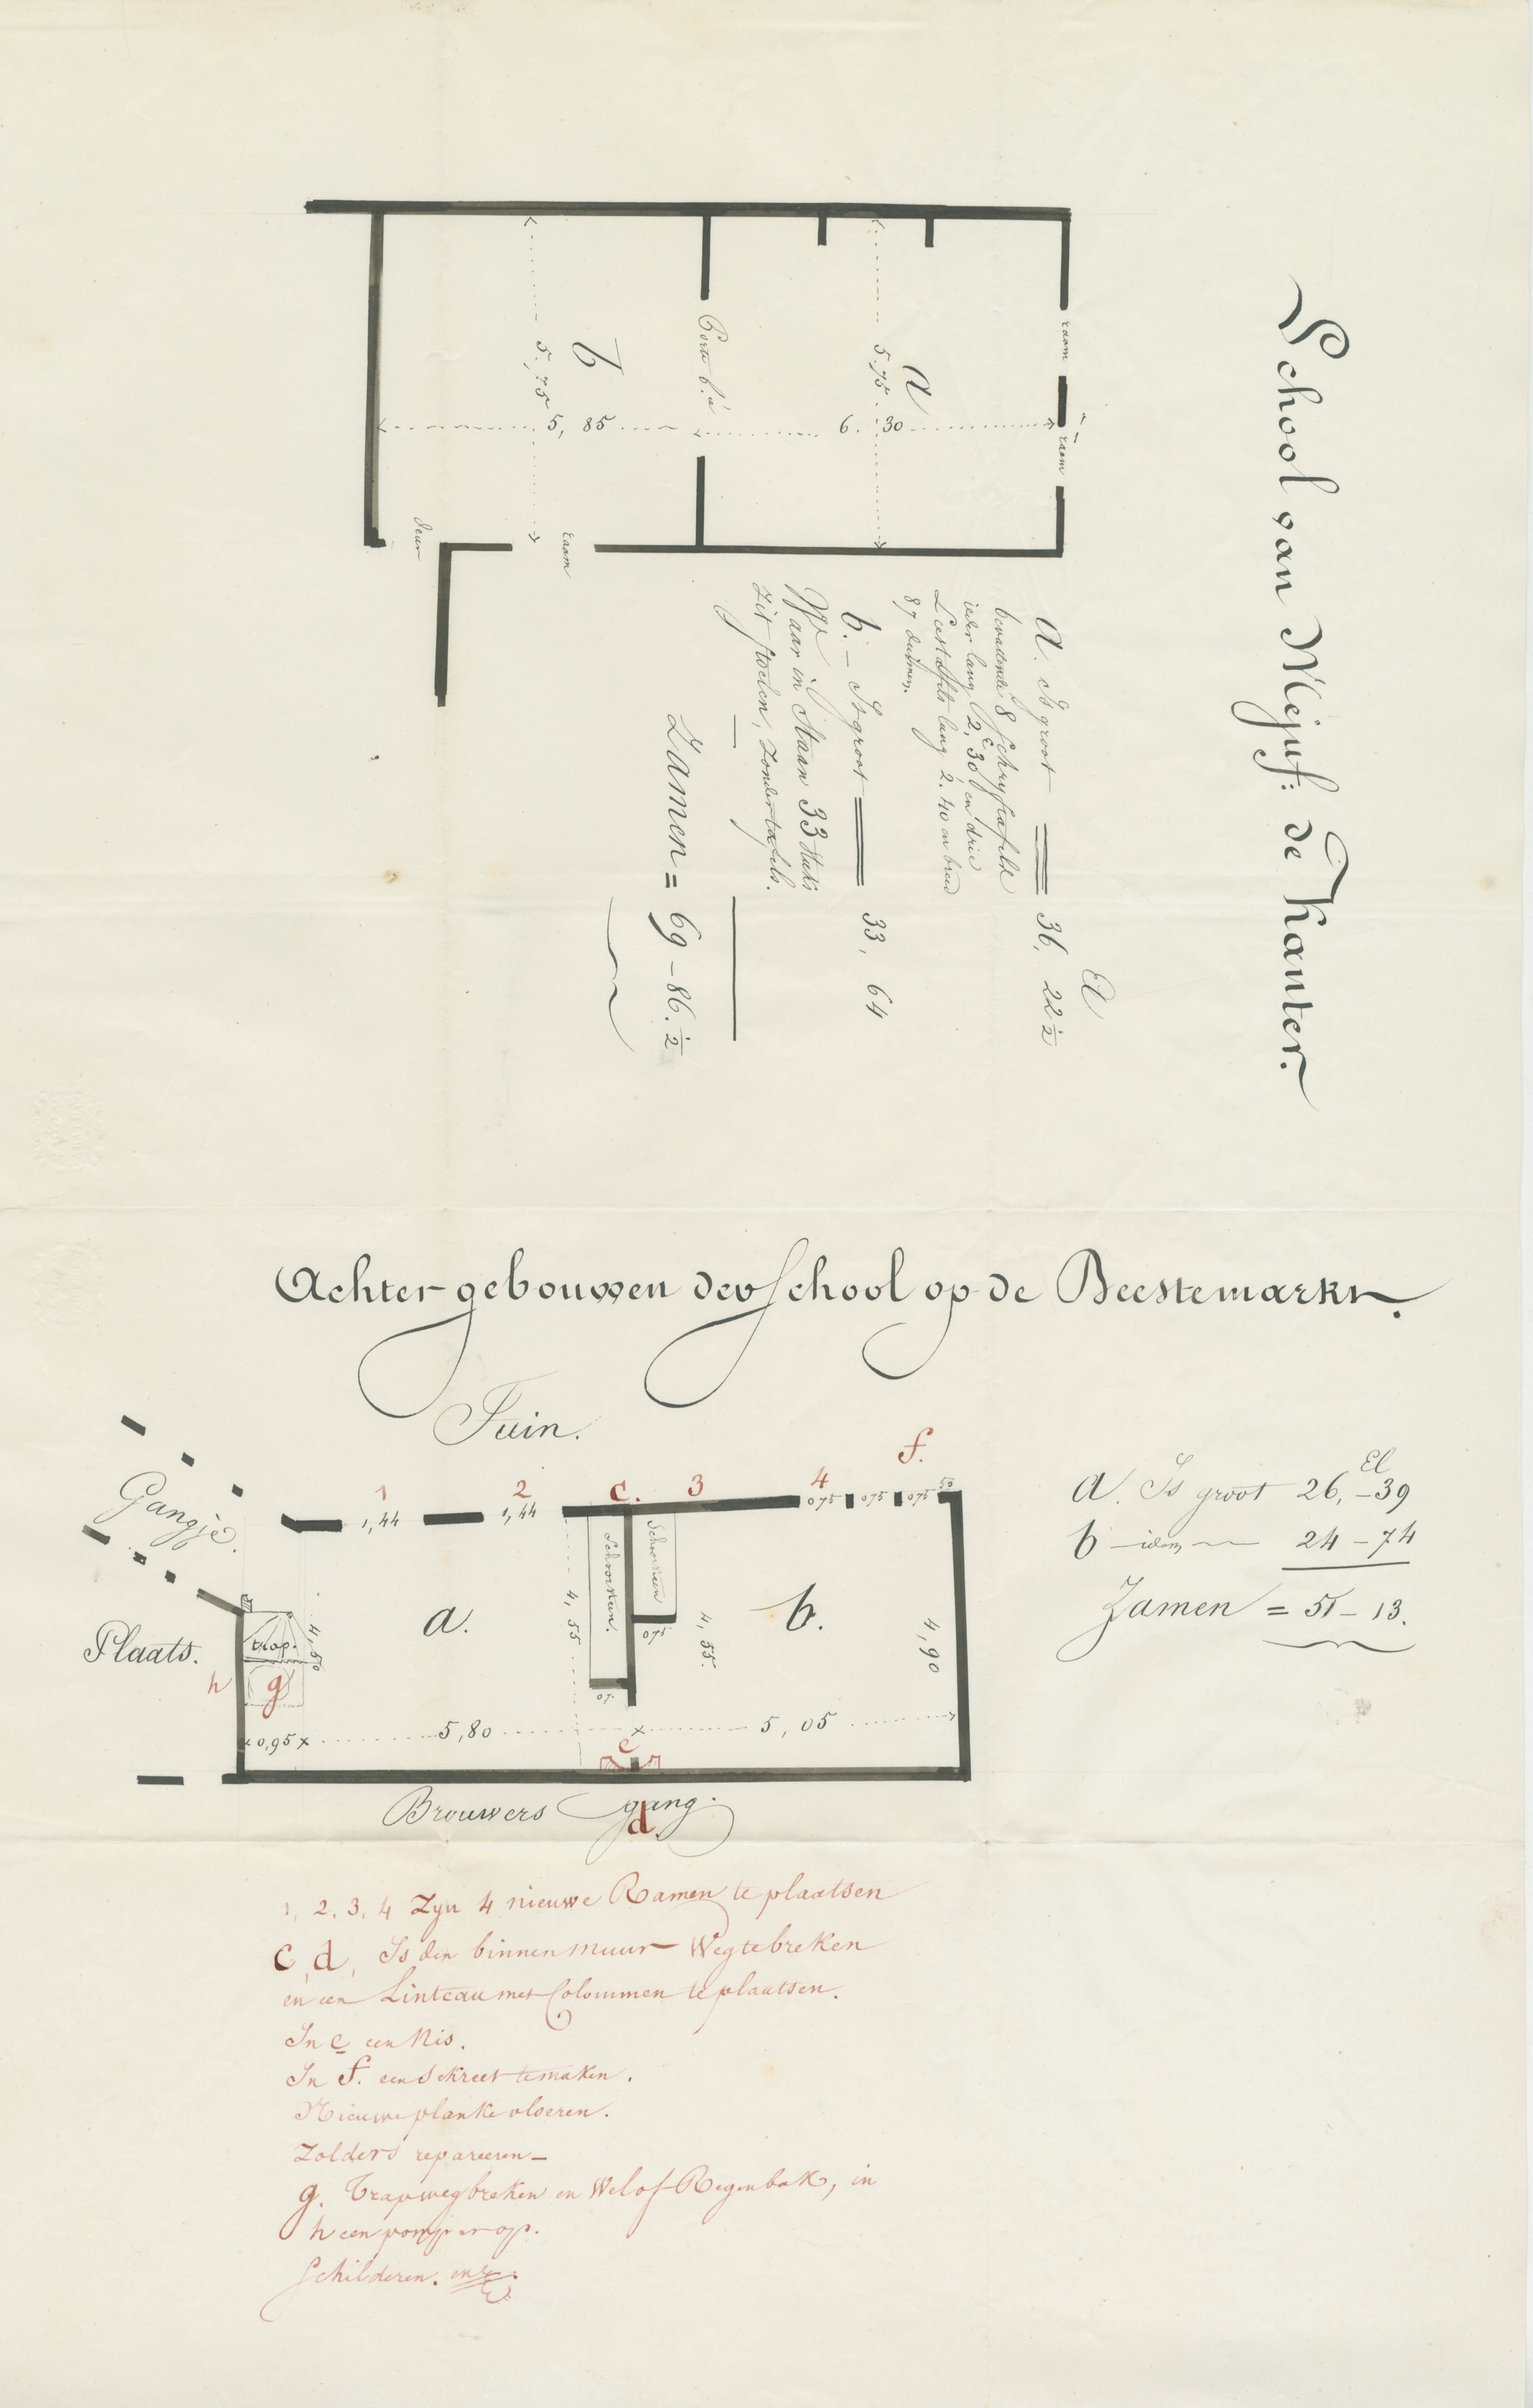 School van Mejuf: de Kanter.
raam
raam
a
5,75
6.30
Porte b.
b
5,75
5,85
deur
raam
El
a. Is groot 36, 22 1/2
bevattende 8 schryftafels
ieder lang 2,30 en drie
Leestafels lang 2.40 en breed
87 duimen.
b. – Is groot 33, 64
Waar in Staan 33 stuks
Zit stoelen, zonder tafels.
Zamen = 69 – 86. 1/2
Achter-gebouwen der School op de Beestemarkt.
Tuin.
Gangje.
Plaats.
1 2 c. 3 4 f.
1,44 1,44 075 075 075 50
Schoorsteen.
Schoorsteen
a.
b.
4,55
075
4,55.
4,90
4,50
trap.
h
g
07
0,95 x 5,80 x 5,05
e
Brouwers gang.
d.
El
a. Is groot 26, – 39
b – idem 24 – 74
Zamen = 51 – 13.
1, 2, 3, 4 Zyn 4 nieuwe Ramen te plaatsen
c, d, Is den binnenmuur Weg te breken
en een Linteau met Colommen te plaatsen.
In e een Nis.
In f. een Sekreet te maken.
Nieuwe planke vloeren.
Zolders repareeren –
g. Trap weg breken en Wel of Regenbak, in
h een pomp er op.
Schilderen. enz.